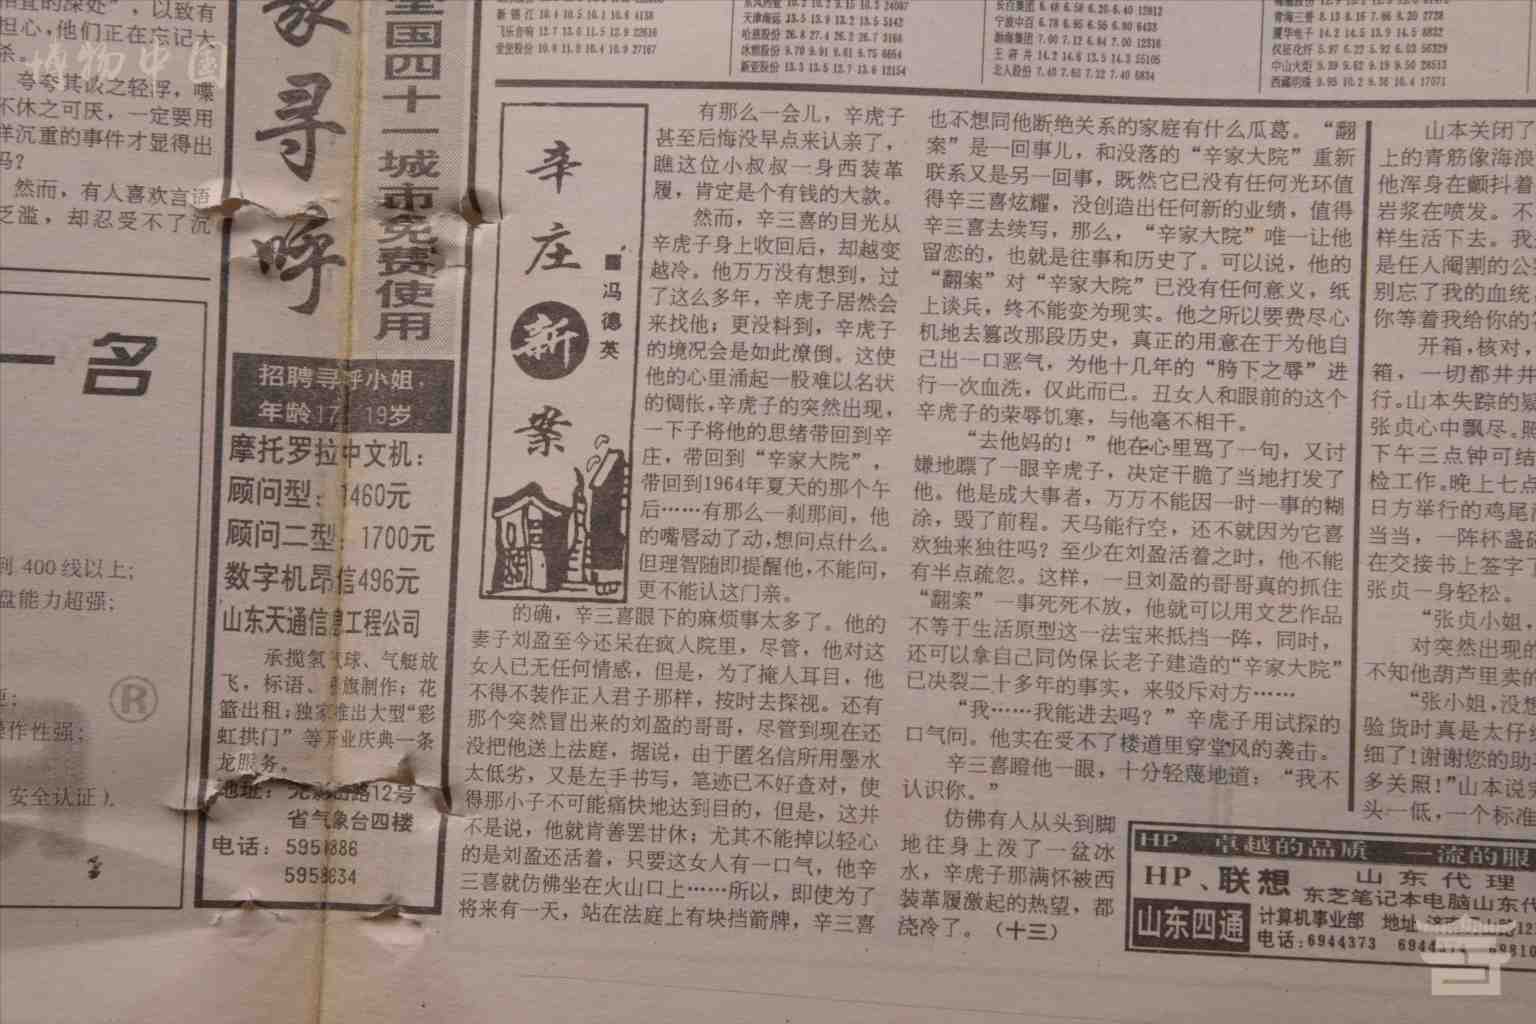 宜的深处”，以致有
担心，他们正在忘记大
杀。
博物中国
夸夸其谈之轻浮，喋
不休之可厌，一定要用
样沉重的事件才显得出
吗？
然而，有人喜欢言语
泛滥，却忍受不了沉
一名
到 400 线以上；
盘能力超强；
操作性强；
安全认证）。
®
寻呼
全国四十一城市免费使用
招聘寻呼小姐，
年龄17 19岁
摩托罗拉中文机：
顾问型： 1460元
顾问二型：1700元
数字机昂信496元
山东天通信息工程公司
承揽氢气球、气艇放
飞，标语、 旗制作；花
篮出租；独家推出大型“彩
虹拱门”等开业庆典一条
龙服务。
地址： 路12号
省气象台四楼
电话：
新锦江 10.4 10.5 10.1 10.6 4138
飞乐音响 12.7 13.0 11.5 13.9 22616
天津海运 13.5 13.9 13.2 13.5 5142
哈慈股份 26.8 27.4 26.2 26.7 3166
冰熊股份 9.70 9.91 9.61 9.75 6654
新亚股份 13.3 13.5 12.7 13.6 12154
长百集团 6.48 6.58 6.20 6.40 12912
宁波中百 6.78 6.95 6.55 6.80 6433
渤海集团 7.00 7.12 6.84 7.00 12316
王府井 14.2 14.6 13.5 14.3 55105
北人股份 7.40 7.61 7.12 7.40 6834
青海三普 8.13 8.16 7.66 8.20 2728
厦华电子 14.2 14.5 13.9 14.5 8832
仪征化纤 5.97 6.22 5.92 6.03 56329
中山火炬 9.39 9.62 9.19 9.50 28513
西藏明珠 9.95 10.2 9.36 10.4 17071
辛庄新案
■冯德英
有那么一会儿，辛虎子
甚至后悔没早点来认亲了，
瞧这位小叔叔一身西装革
履，肯定是个有钱的大款。
然而，辛三喜的目光从
辛虎子身上收回后，却越变
越冷。他万万没有想到，过
了这么多年，辛虎子居然会
来找他；更没料到，辛虎子
的境况会是如此潦倒。这使
他的心里涌起一股难以名状
的惆怅，辛虎子的突然出现，
一下子将他的思绪带回到辛
庄，带回到“辛家大院”，
带回到1964年夏天的那个午
后……有那么一刹那间，他
的嘴唇动了动，想问点什么。
但理智随即提醒他，不能问，
更不能认这门亲。
的确，辛三喜眼下的麻烦事太多了。他的
妻子刘盈至今还呆在疯人院里，尽管，他对这
女人已无任何情感，但是，为了掩人耳目，他
不得不装作正人君子那样，按时去探视。还有
那个突然冒出来的刘盈的哥哥，尽管到现在还
没把他送上法庭，据说，由于匿名信所用墨水
太低劣，又是左手书写，笔迹已不好查对，使
得那小子不可能痛快地达到目的，但是，这并
不是说，他就肯善罢甘休；尤其不能掉以轻心
的是刘盈还活着，只要这女人有一口气，他辛
三喜就仿佛坐在火山口上……所以，即使为了
将来有一天，站在法庭上有块挡箭牌，辛三喜
也不想同他断绝关系的家庭有什么瓜葛。“翻
案”是一回事儿，和没落的“辛家大院”重新
联系又是另一回事，既然它已没有任何光环值
得辛三喜炫耀，没创造出任何新的业绩，值得
辛三喜去续写，那么，“辛家大院”唯一让他
留恋的，也就是往事和历史了。可以说，他的
“翻案”对“辛家大院”已没有任何意义，纸
上谈兵，终不能变为现实。他之所以要费尽心
机地去篡改那段历史，真正的用意在于为他自
己出一口恶气，为他十几年的“胯下之辱”进
行一次血洗，仅此而已。丑女人和眼前的这个
辛虎子的荣辱饥寒，与他毫不相干。
“去他妈的！”他在心里骂了一句，又讨
嫌地瞟了一眼辛虎子，决定干脆了当地打发了
他。他是成大事者，万万不能因一时一事的糊
涂，毁了前程。天马能行空，还不就因为它喜
欢独来独往吗？至少在刘盈活着之时，他不能
有半点疏忽。这样，一旦刘盈的哥哥真的抓住
“翻案”一事死死不放，他就可以用文艺作品
不等于生活原型这一法宝来抵挡一阵，同时，
还可以拿自己同伪保长老子建造的“辛家大院”
已决裂二十多年的事实，来驳斥对方……
“我……我能进去吗？”辛虎子用试探的
口气问。他实在受不了楼道里穿堂风的袭击。
辛三喜瞪他一眼，十分轻蔑地道：“我不
认识你。”
仿佛有人从头到脚
地往身上泼了一盆冰
水，辛虎子那满怀被西
装革履激起的热望，都
浇冷了。（十三）
山本关闭了
上的青筋像海浪
他浑身在颤抖着
岩浆在喷发。不
样生活下去。我
是任人阉割的公
别忘了我的血统
你等着我给你的
开箱，核对，
箱，一切都井井
行。山本失踪的疑
张贞心中飘尽。
下午三点钟可结
检工作。晚上七点
日方举行的鸡尾酒
当当，一阵杯盏
在交接书上签字了
张贞一身轻松。
“张贞小姐，
对突然出现的
不知他葫芦里卖的
“张小姐，没想
验货时真是太仔细
细了！谢谢您的助
多关照！”山本说完
头一低，一个标准
HP 卓越的品质 一流的服
HP、联想 山东代理
东芝笔记本电脑山东代
山东四通
计算机事业部 地址
电话：6944373